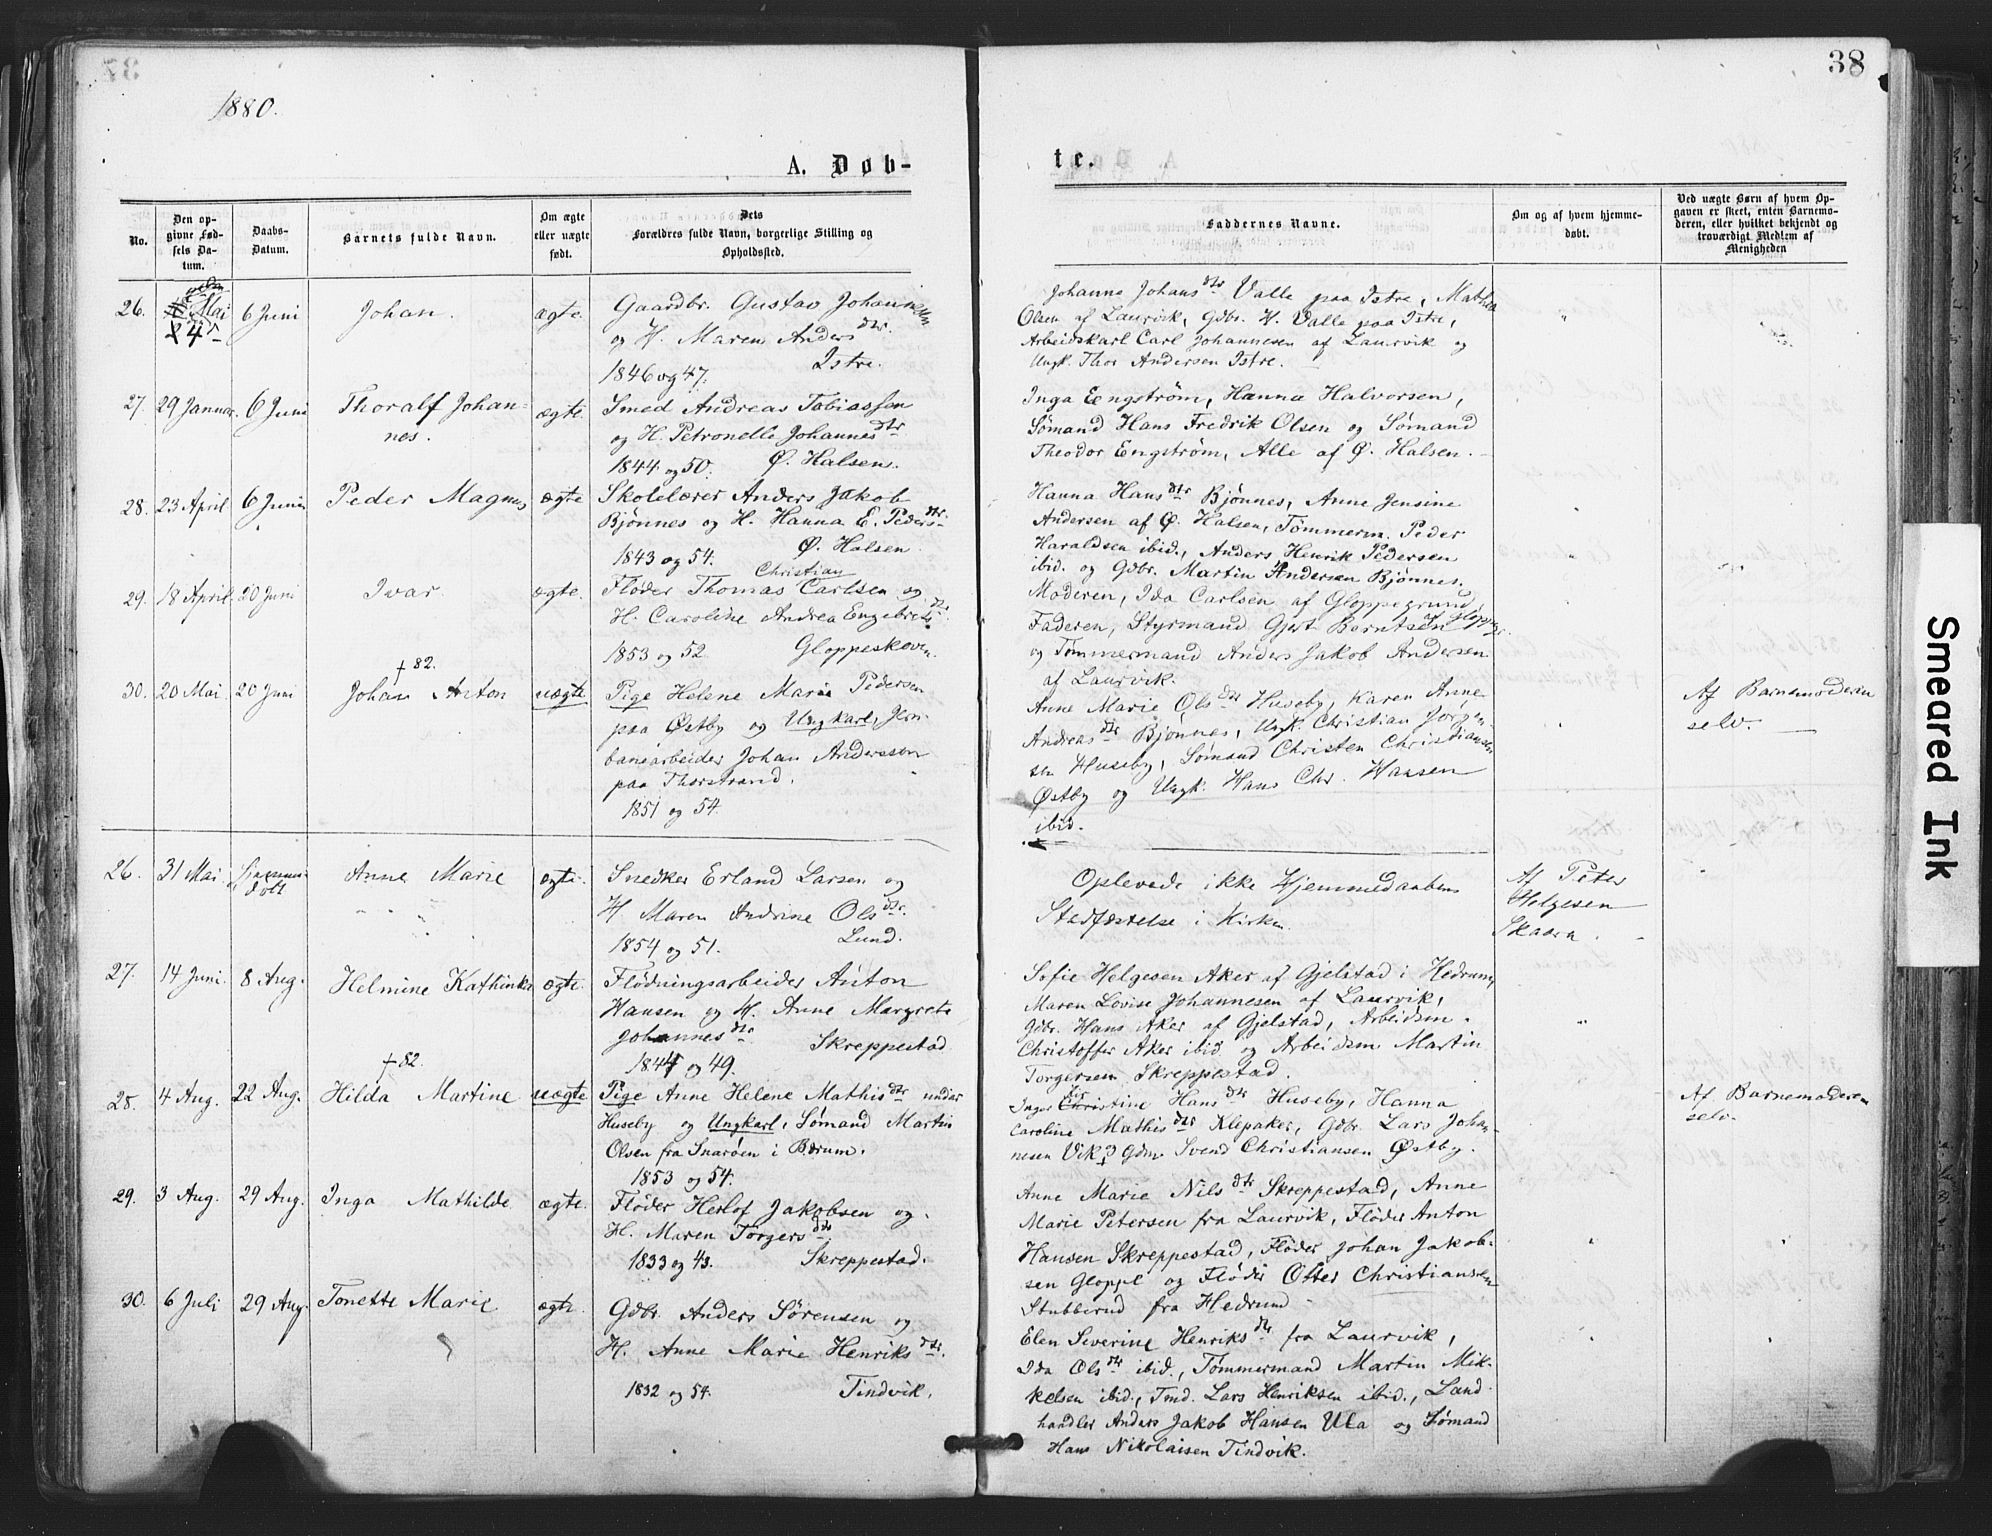 38
1880.
A. Døb-
te.
No.
Den op-
givne Fød-
sels Da-
tum.
Daabs-
Datum.
Barnets fulde Navn.
Om ægte
eller uægte
født.
Dets
Forældres fulde Navn, borgerlige Stilling og
Opholdssted.
Faddernes Navne.
Om og af hvem hjemme-
døbt.
Ved uægte Børn af hvem Op-
gaven er skeet, enten Barnemo-
deren, eller hvilket bekjendt og
troværdigt Medlem af
Menigheden
26. Mai 6 Juni Johan. ægte.
24
Gaardbr. Gustav Johannesen
og H. Maren Andersdtr.
Istre.
1846 og 47.
Johanne Johansdtr Valle paa Istre, Mathea
Olsen af Laurvik, Gdbr. H. Valle paa Istre,
Arbeidskarl Carl Johannesen af Laurvik og
Ungk. Thor Andersen Istre.
27. 29 Januar. 6 Juni Thoralf Johan-
nes. ægte.
Smed Andreas Tobiassen
og H. Petronelle Johannesdtr
1844 og 50. Ø. Halsen.
Inga Engström, Hanna Halvorsen,
Sømand Hans Fredrik Olsen og Sømand
Theodor Engström, Alle af Ø. Halsen.
28. 23 April 6 Juni Peder Magnus ægte
Skolelærer Anders Jakob
Bjønnes og H. Hanna E. Pedersdtr.
1843 og 54. Ø. Halsen.
Hanna Hansdtr Bjønnes, Anne Jensine
Andersen af Ø. Halsen, Tømmerm. Peder
Haraldsen ibid., Anders Henrik Pedersen
ibid. og Gdbr. Martin Andersen Bjønnes.
29. 18 April. 20 Juni Ivar. ægte.
Christian
Fløder Thomas Carlsen og
H. Caroline Andrea Engebretsdtr.
1853 og 52 Gloppeskoven.
Moderen, Ida Carlsen af Gloppegrund,
Faderen, Styrmand Gjert Berntsen af Gloppegr.
og Tømmermand Anders Jakob Andersen
af Laurvik.
† 82.
30. 20 Mai 20 Juni Johan Anton uægte
Pige Helene Marie Pedersen
paa Østby og Ungkarl, Jern-
banearbeider Johan Anderssen
paa Thorstrand.
1851 og 54.
Anne Marie Olsdtr Huseby, Karen Anne
Andreasdtr Bjønnes, Ungk. Christian Jørgen-
sen Huseby, Sømand Christen Christiansen
Østby og Ungk. Hans Chr. Hansen
ibid.
Af Barnemoderen
selv.
26. 31 Mai Hjemme-
døbt Anne Marie ægte.
Snedker Erland Larsen og
H. Maren Andrine Olsdtr.
1854 og 51. Lund.
Oplevede ikke Hjemmedaabens
Stadfæstelse i Kirken.
Af Peter
Helgesen
Skaara.
27. 14 Juni. 8 Aug. Helmine Kathinka ægte.
Flødningsarbeider Anton
Hansen og H. Anne Margrete
Johannesdtr Skreppestad
1844 og 49.
Sofie Helgesen Aker af Gjelstad i Hedrum,
Maren Lovise Johannesen af Laurvik,
Gdbr. Hans Aker af Gjelstad, Arbeidsm.
Christoffer Aker ibid og Arbeidsm Martin
Torgersen Skreppestad.
† 82.
28. 4 Aug. 22 Aug. Hilda Martine uægte
Pige Anne Helene Mathisdtr under
Huseby og Ungkarl, Sømand Martin
Olsen fra Snarøen i Bærum.
1853 og 54.
Inger Christine Hansdtr Huseby, Hanna
Caroline Mathisdtr Klepaker, Gdbr. Lars Johan-
nesen Vik og Gdm Svend Christiansen Østby.
Af Barnemoderen
selv.
29. 3 Aug. 29 Aug. Inga Mathilde ægte.
Fløder Herlof Jakobsen og
H. Maren Torgersdtr.
1833 og 43. Skreppestad.
Anne Marie Nilsdtr Skreppestad, Anne
Marie Petersen fra Laurvik, Fløder Anton
Hansen Skreppestad, Fløder Johan Jakob-
sen Gloppe og Fløder Ofter Christiansen
Stubberud fra Hedrum
30. 6 Juli 29 Aug. Tonette Marie ægte.
Gdbr. Anders Sørensen og
H. Anne Marie Henriksdtr.
1832 og 54. Tindvik.
Elen Severine Henriksdtr fra Laurvik,
Ida Olsdtr ibid., Tømmermand Martin Mik-
kelsen ibid., Tmd. Lars Henriksen ibid., Land-
handler Anders Jakob Hansen Ula og Sømand
Hans Nikolaisen Tindvik.
Smeared Ink